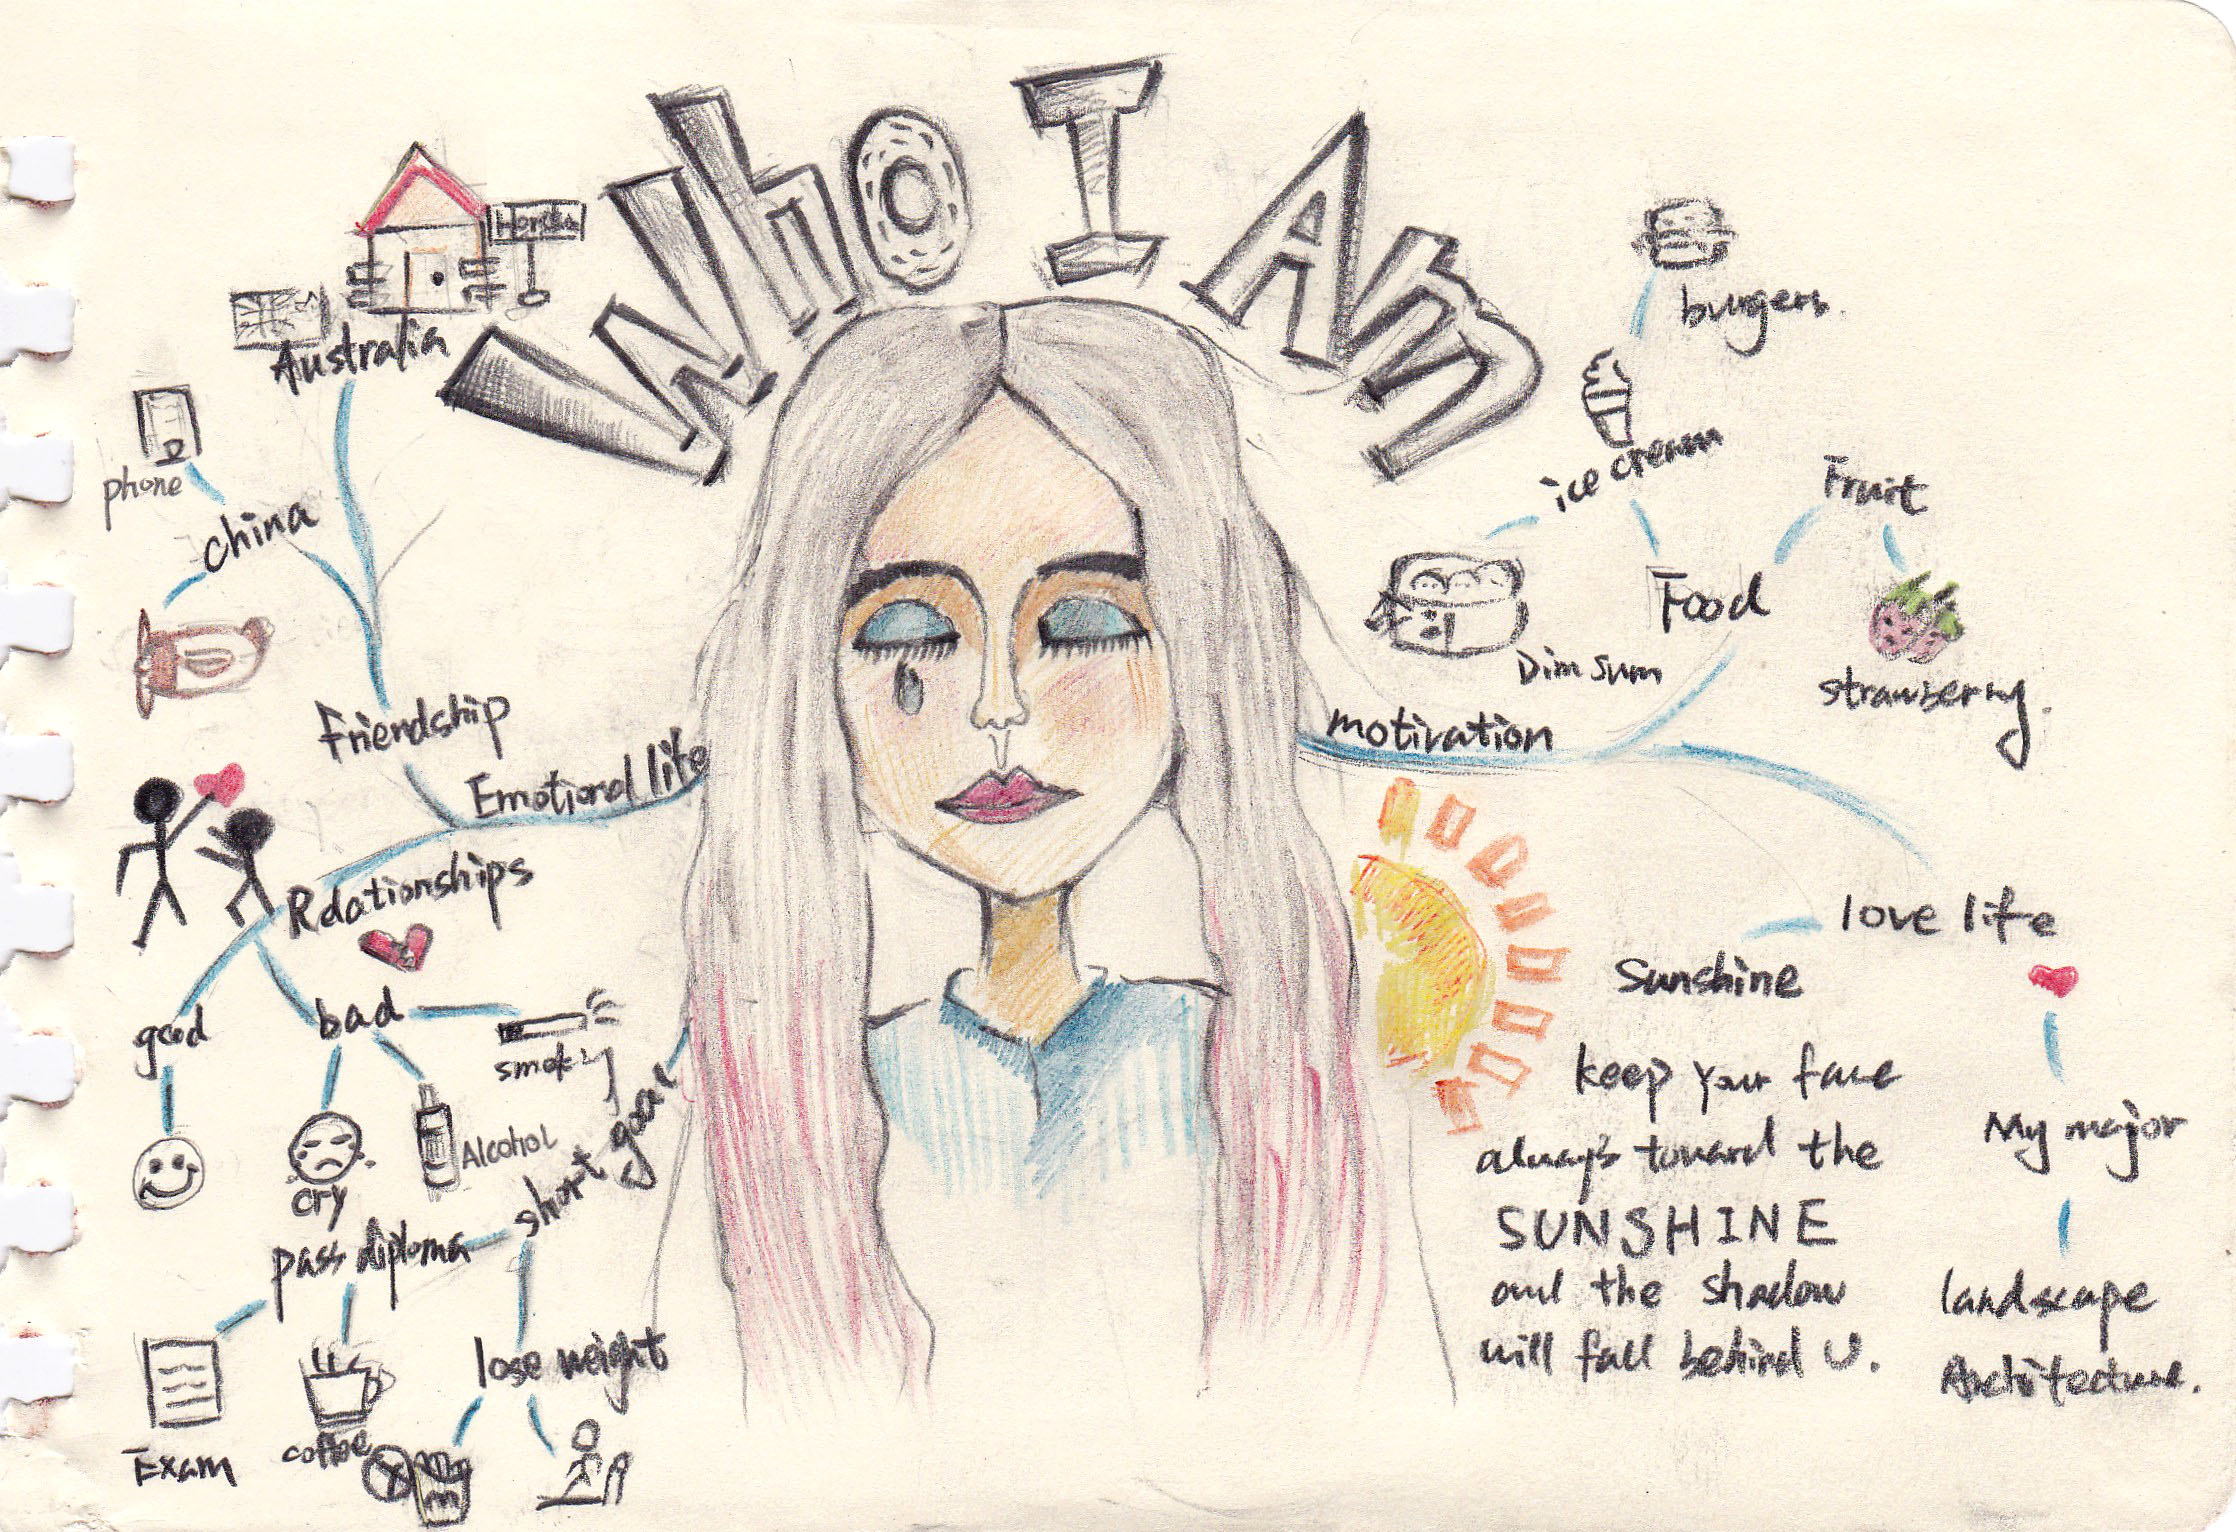 Who I Am
Australia
phone
china
Friendship
Emotional life
Relationships
good
bad
smoking
Alcohol
cry
short goal
pass diploma
Exam
coffee
lose weight
M
motivation
Food
ice cream
burgers.
Dim sum
Fruit
strawberry.
love life
Sunshine
keep your face
always toward the
SUNSHINE
and the shadow
will fall behind U.
My major
landscape
Architecture.